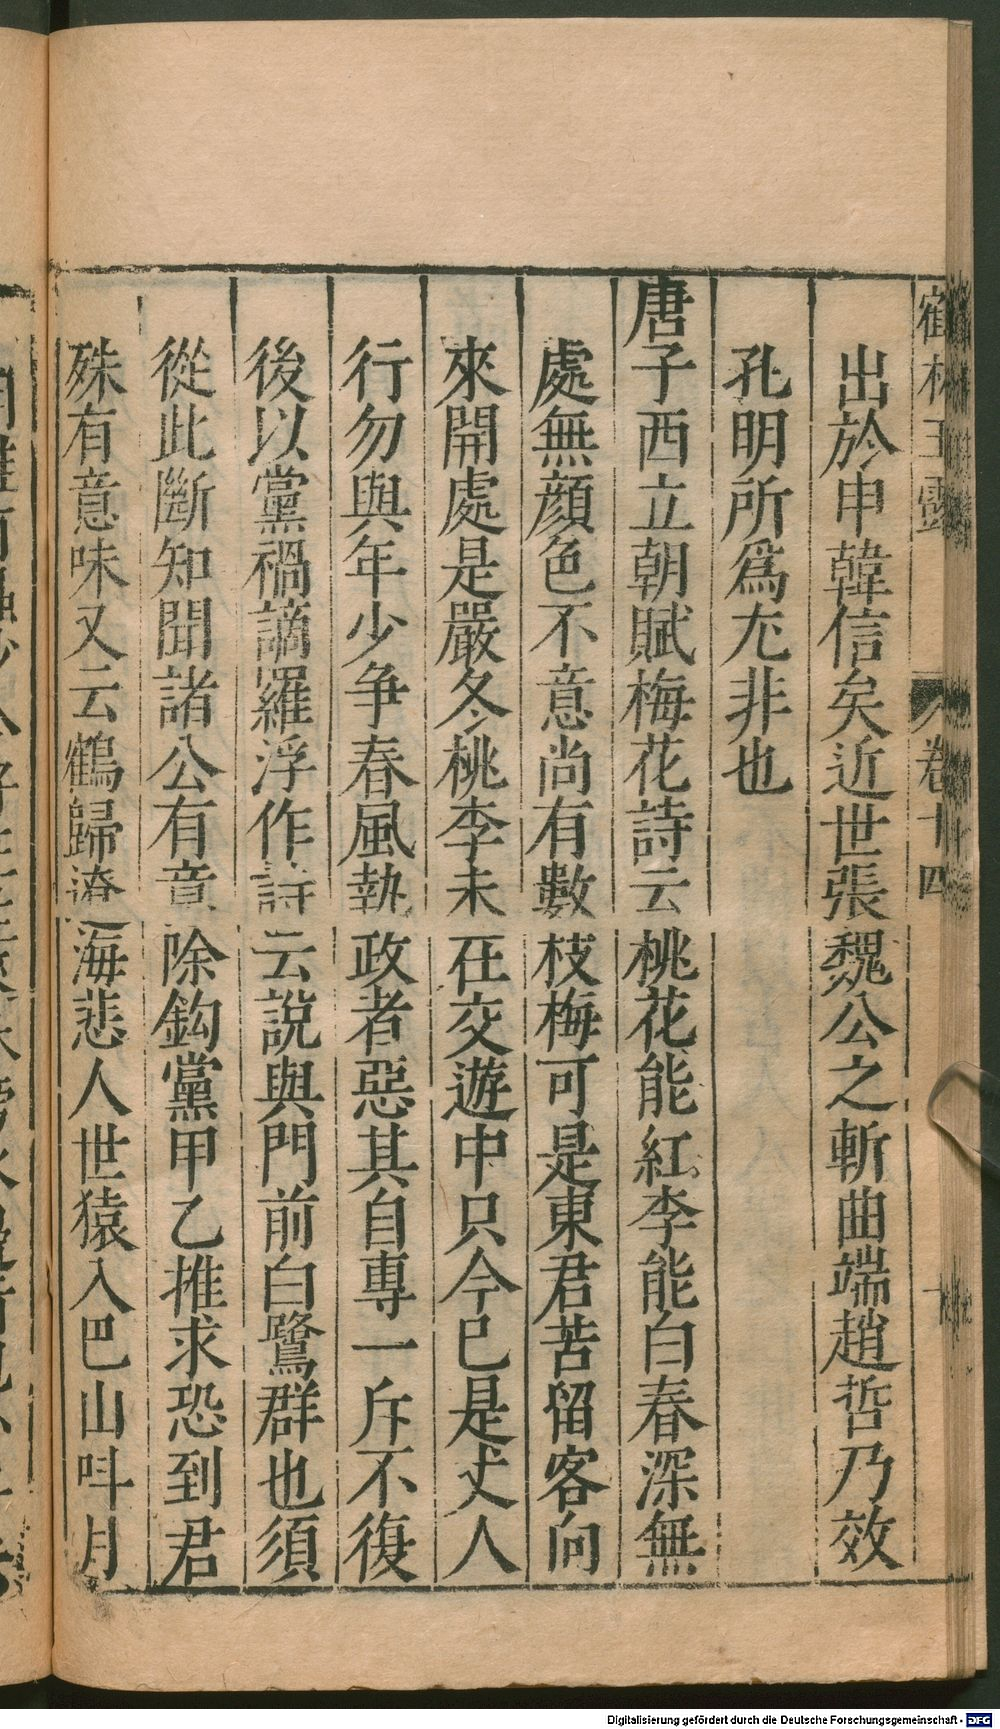 出於申韓信矣近世張魏公之斬曲端趙哲乃效
孔明所爲尢非也
唐子西立朝賦梅花詩云桃花能紅李能白春深無
處無顔色不意尚有數枝梅可是東君苦留客向
來開處是嚴冬桃李未在交遊中只今已是丈人
行勿與年少争春風執政者惡其自專一斥不復
後以黨禍謫羅浮作詩云說與門前白鷺群也須
從此斷知聞諸公有意除鈎黨甲乙推求恐到君
殊有意味又云鶴歸遼海悲人世猿入巴山呌月
卷十四
Digitalisierung gefördert durch die Deutsche Forschungsgemeinschaft - DFG